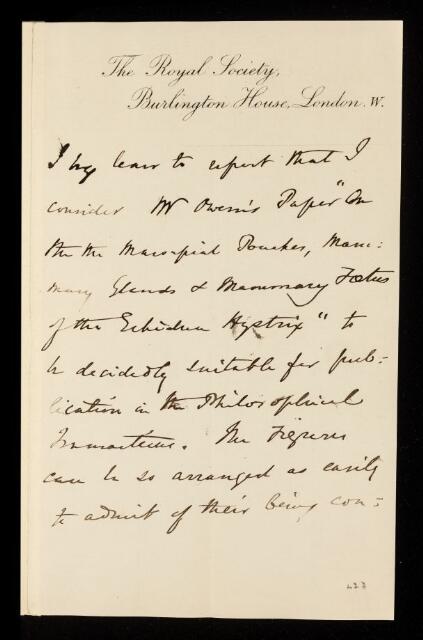 The Royal Society,
Burlington House, London. W.
I beg leave to report that I
consider Mr Owen's Paper "On
the the Marsupial Pouches, Mam-
mary Glands & Mammary Foetus
of the Echidna Hystrix" to
be decidedly suitable for pub-
lication in the Philosophical
Transactions. The Figures
can be so arranged as easily
to admit of their being con-
423